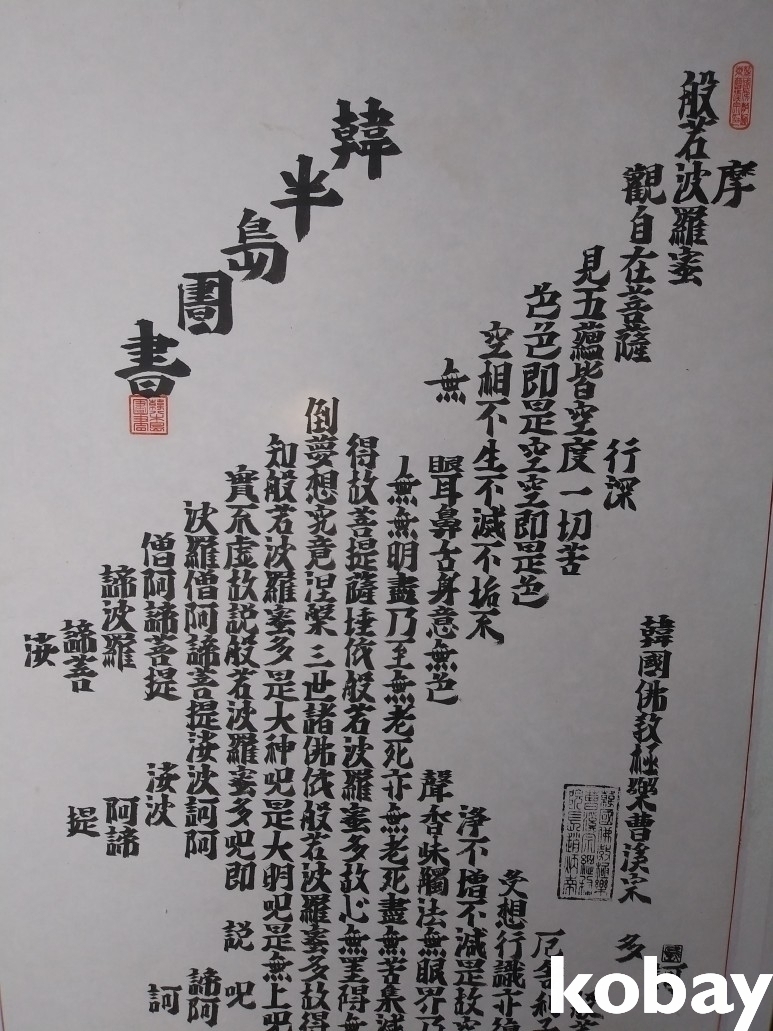 摩
訶
般若波羅蜜
多
觀自在菩薩
行深
般
見五蘊皆空度一切苦
厄舍利子
色色即是空空即是色
受想行識亦復
空相不生不滅不垢不
淨不增不減是故空
無
眼耳鼻舌身意無色
聲香味觸法無眼界乃
無無明盡乃至無老死亦無老死盡無苦集滅
得故菩提薩埵依般若波羅蜜多故心無罣碍無
倒夢想究竟涅槃三世諸佛依般若波羅蜜多故得
知般若波羅蜜多是大神呪是大明呪是無上呪
實不虛故說般若波羅蜜多呪即
說
呪
波羅僧阿諦菩提娑波訶阿
諦阿
僧阿諦菩提
娑波
訶
諦波羅
阿諦
諦菩
提
娑
韓國佛敎極樂曹溪宗
韓半島圖書
kobay